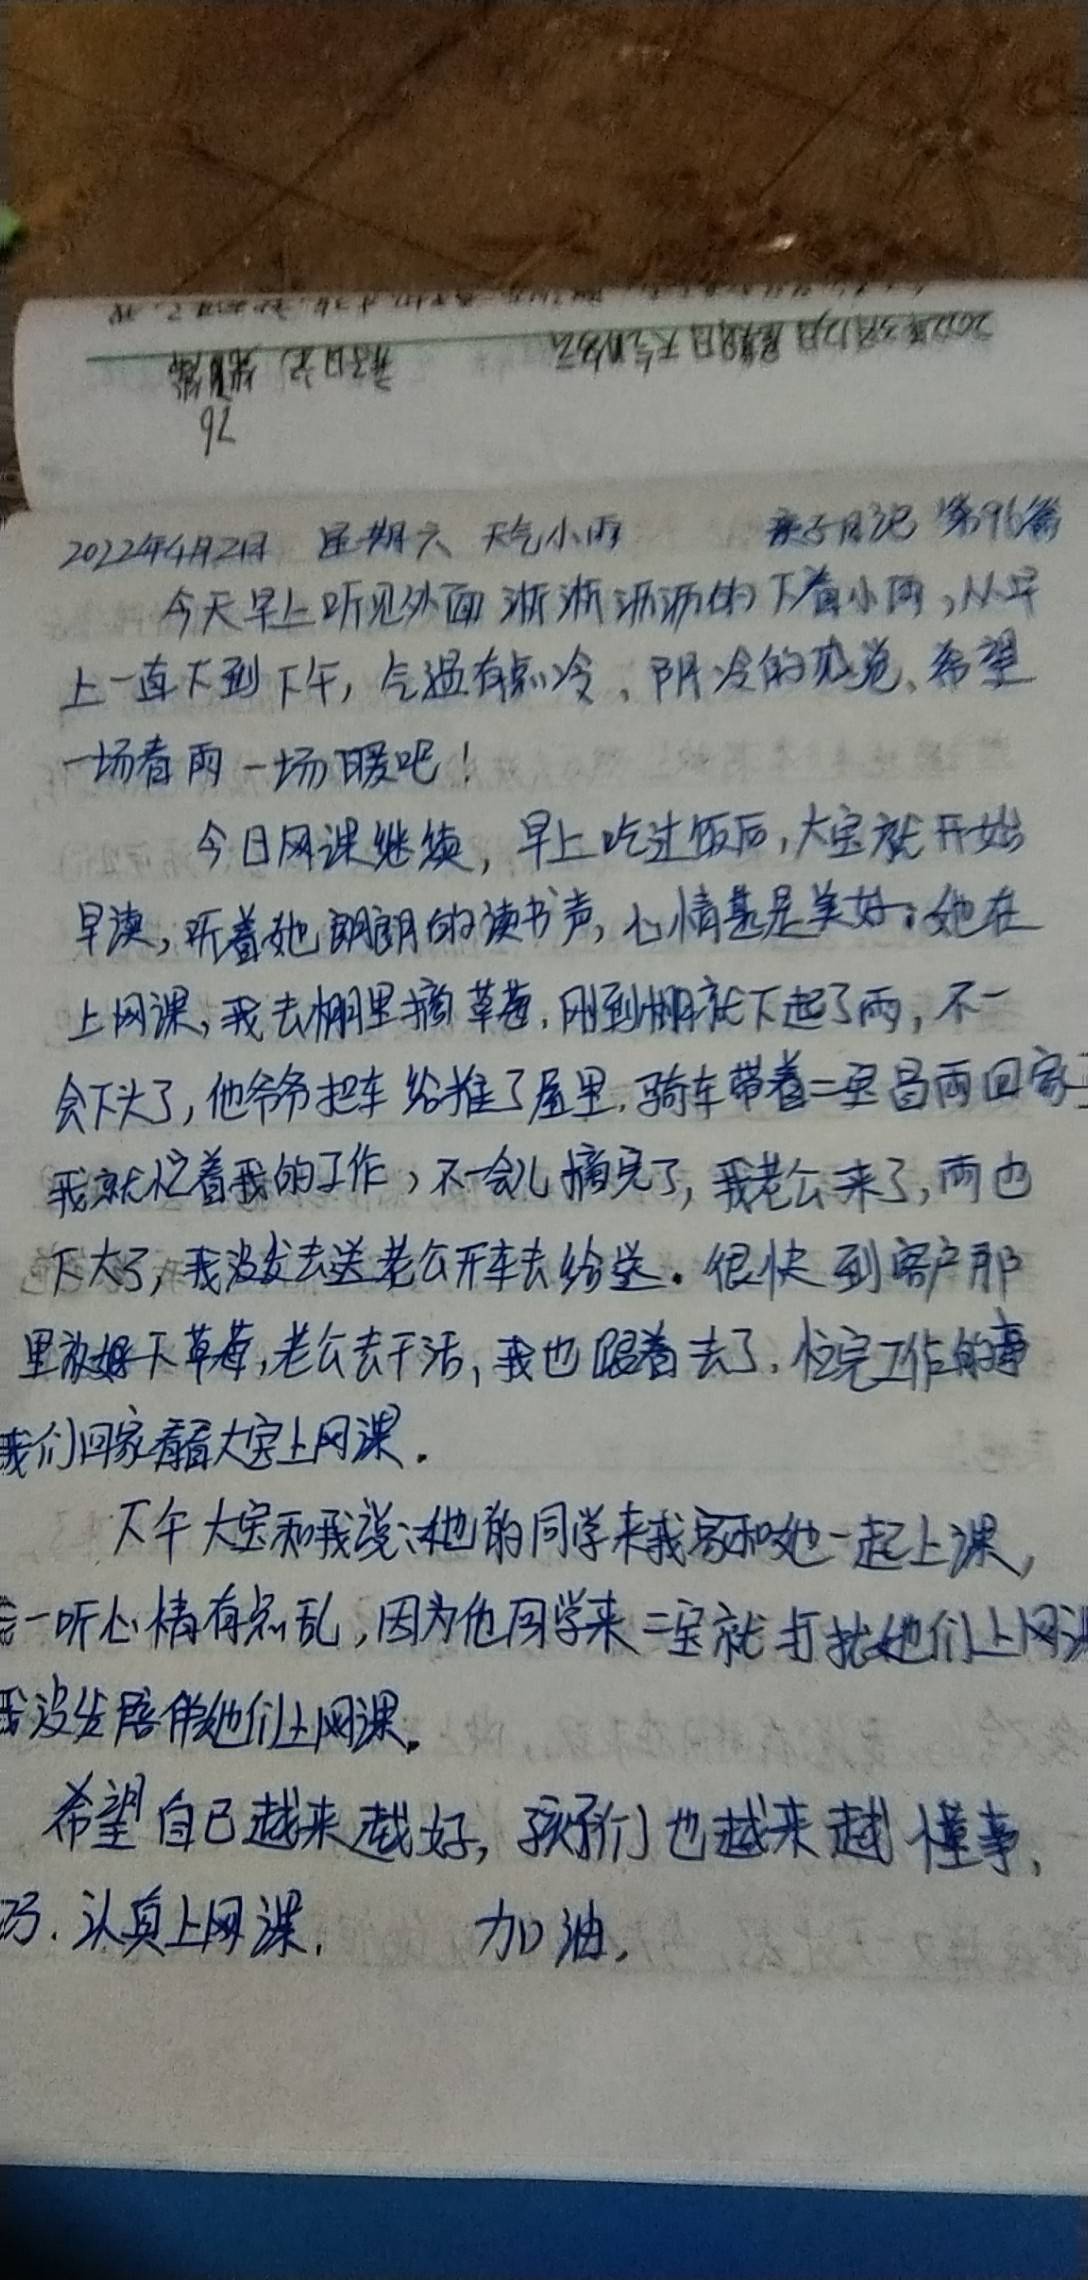 2022年4月2日 星期六 天气小雨 亲子日记 第96篇
今天早上听见外面淅淅沥沥的下着小雨,从早
上一直下到下午,气温有点冷、阴冷的感觉、希望
一场春雨一场暖吧!
今日网课继续,早上吃过饭后,大宝就开始
早读,听着她朗朗的读书声,心情甚是美好。她在
上网课,我去棚里摘草莓,刚到棚就下起了雨,不一
会下大了,他爷爷把车给推了屋里,骑车带着二宝冒雨回家
我就忙着我的工作,不一会儿摘完了,我老公来了,雨也
下大了,我没发去送老公开车去给送。很快到客户那
里放下草莓,老公去干活,我也跟着去了,忙完工作的事
我们回家看看大宝上网课.
下午大宝和我说:她的同学来我家和她一起上课,
一听心情有点乱,因为他同学来二宝就打扰她们上网课
我没发陪伴她们上网课.
希望自己越来越好,孩子们也越来越懂事,
习.认真上网课. 加油.
2022年3月12日 星期日 天气
亲子日记 第 篇
76